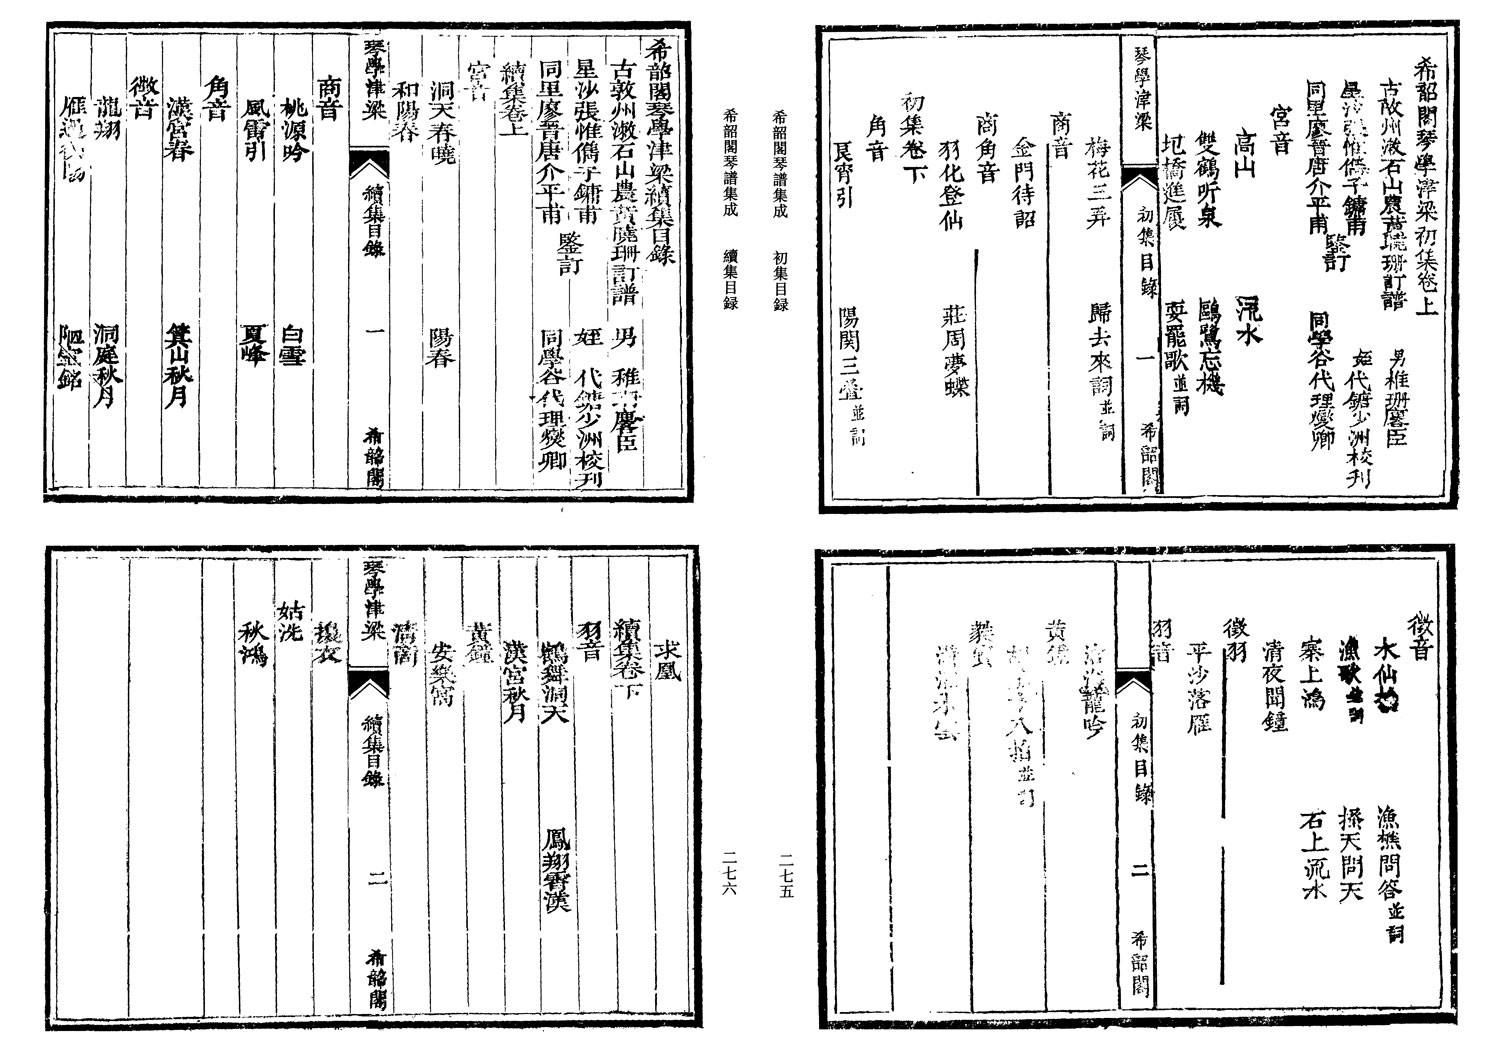 希韶閣琴學津梁初集卷上
古敦州漱石山農黃曉珊訂譜 男稚珊麐臣
星沙張惟儁子鏞甫 姪代鏕少洲校刊
同里廖晉唐介平甫鑒訂 同學谷代理燮卿
宮音
高山 流水
雙鶴听泉 鷗鷺忘機
圯橋進履 耍罷歌並詞
琴學津梁 初集目錄 一 希韶閣
梅花三弄 歸去來詞並詞
商音
金門待詔
商角音
羽化登仙 莊周夢蝶
初集卷下
角音
良宵引 陽関三疊並詞
徵音
水仙操 漁樵問答並詞
漁歌並詞 搔天問天
塞上鴻 石上流水
清夜聞鐘
徵羽
平沙落雁
羽音
初集目錄 二 希韶閣
滄海龍吟
黃鐘
胡笳十八拍並詞
蕤賓
瀟湘水雲
希韶閣琴譜集成 初集目录
二七五
希韶閣琴譜集成 續集目录
二七六
希韶閣琴學津梁續集目錄
古敦州漱石山農黃曉珊訂譜 男 稚珊麐臣
星沙張惟儁子鏞甫 姪 代鏕少洲校刊
同里廖晉唐介平甫鑒訂 同學谷代理燮卿
續集卷上
宮音
洞天春曉 陽春
和陽春
琴學津梁 續集目錄 一 希韶閣
商音
桃源吟 白雪
風雷引 夏峰
角音
漢宮春 箕山秋月
徵音
龍翔 洞庭秋月
雁過衡陽 陋室銘
求凰
續集卷下
羽音
鶴舞洞天 鳳翔霄漢
漢宮秋月
黃鐘
安樂窩
清商
琴學津梁 續集目錄 二 希韶閣
搗衣
姑洗
秋鴻